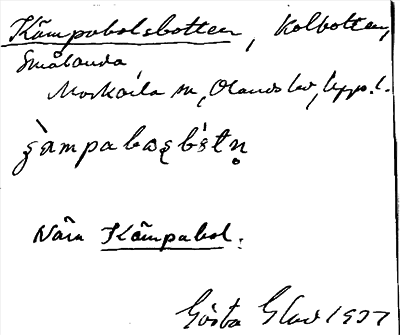 Kämpabolsbotten, Kolbotten,
Smålanda
Morkarla sn, Olands hd, Uppl.
Nära Kämpabol.
Gösta Glad 1937